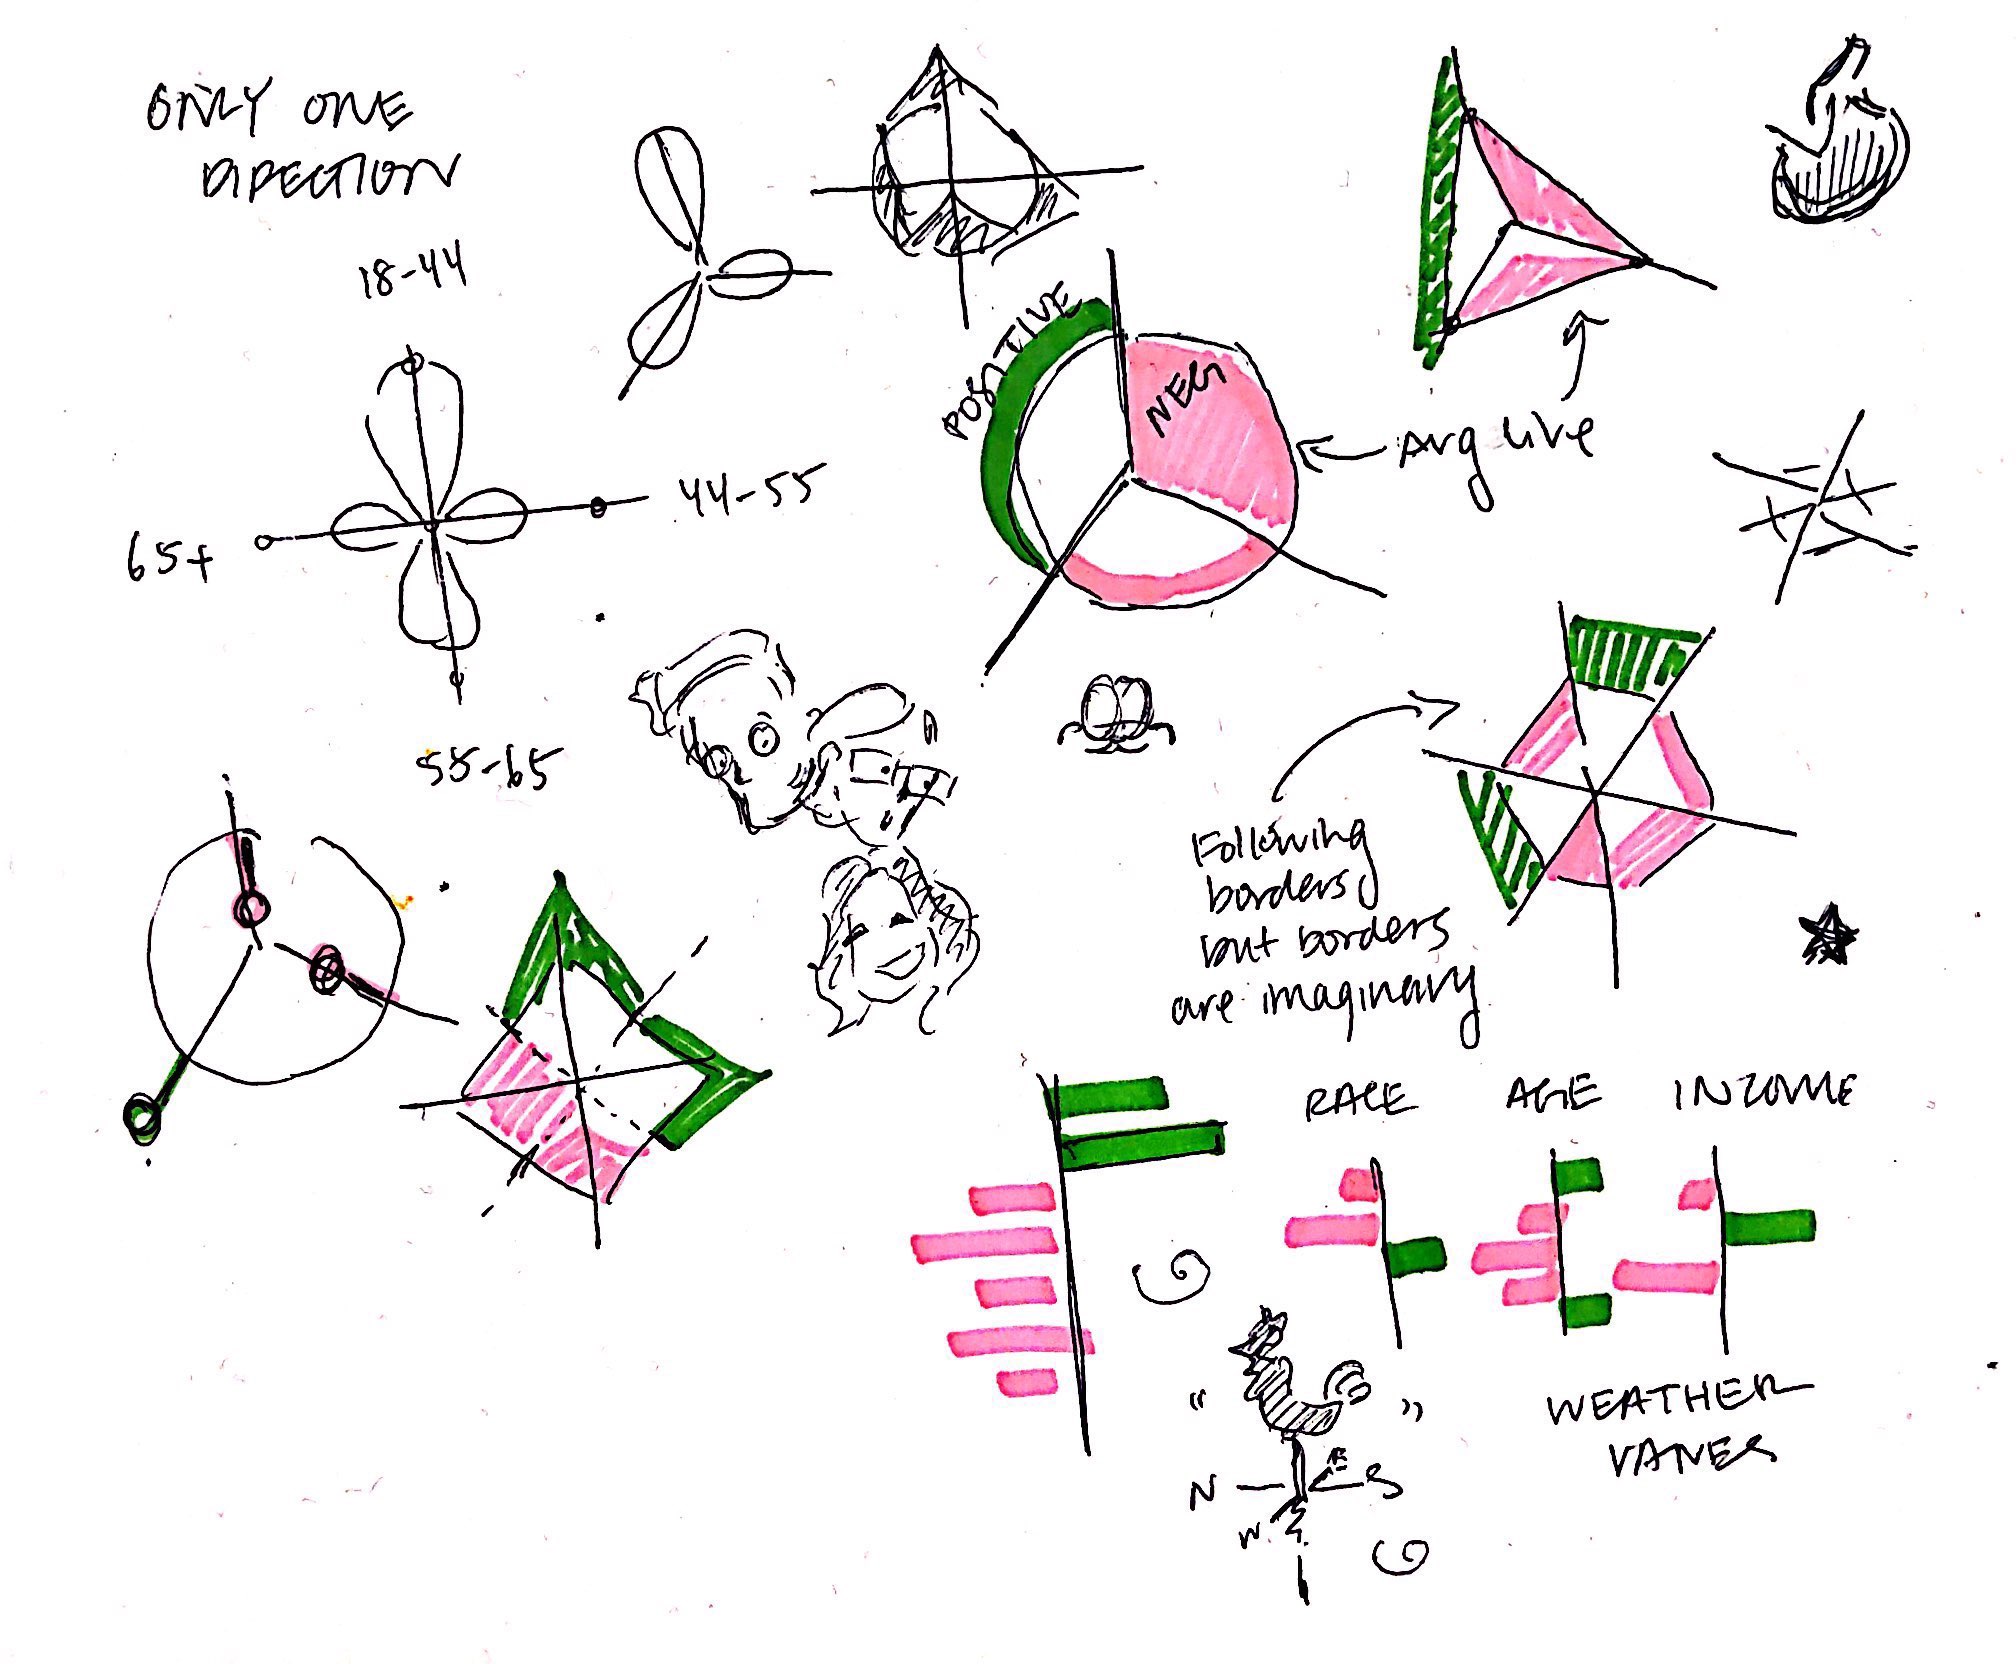 ONLY ONE
DIRECTION
18-44
44-55
65+
55-65
POSITIVE
NEG
Avg live
Following
borders
but borders
are imaginary
RACE AGE INCOME
“ ”
WEATHER
VANES
N E S
W